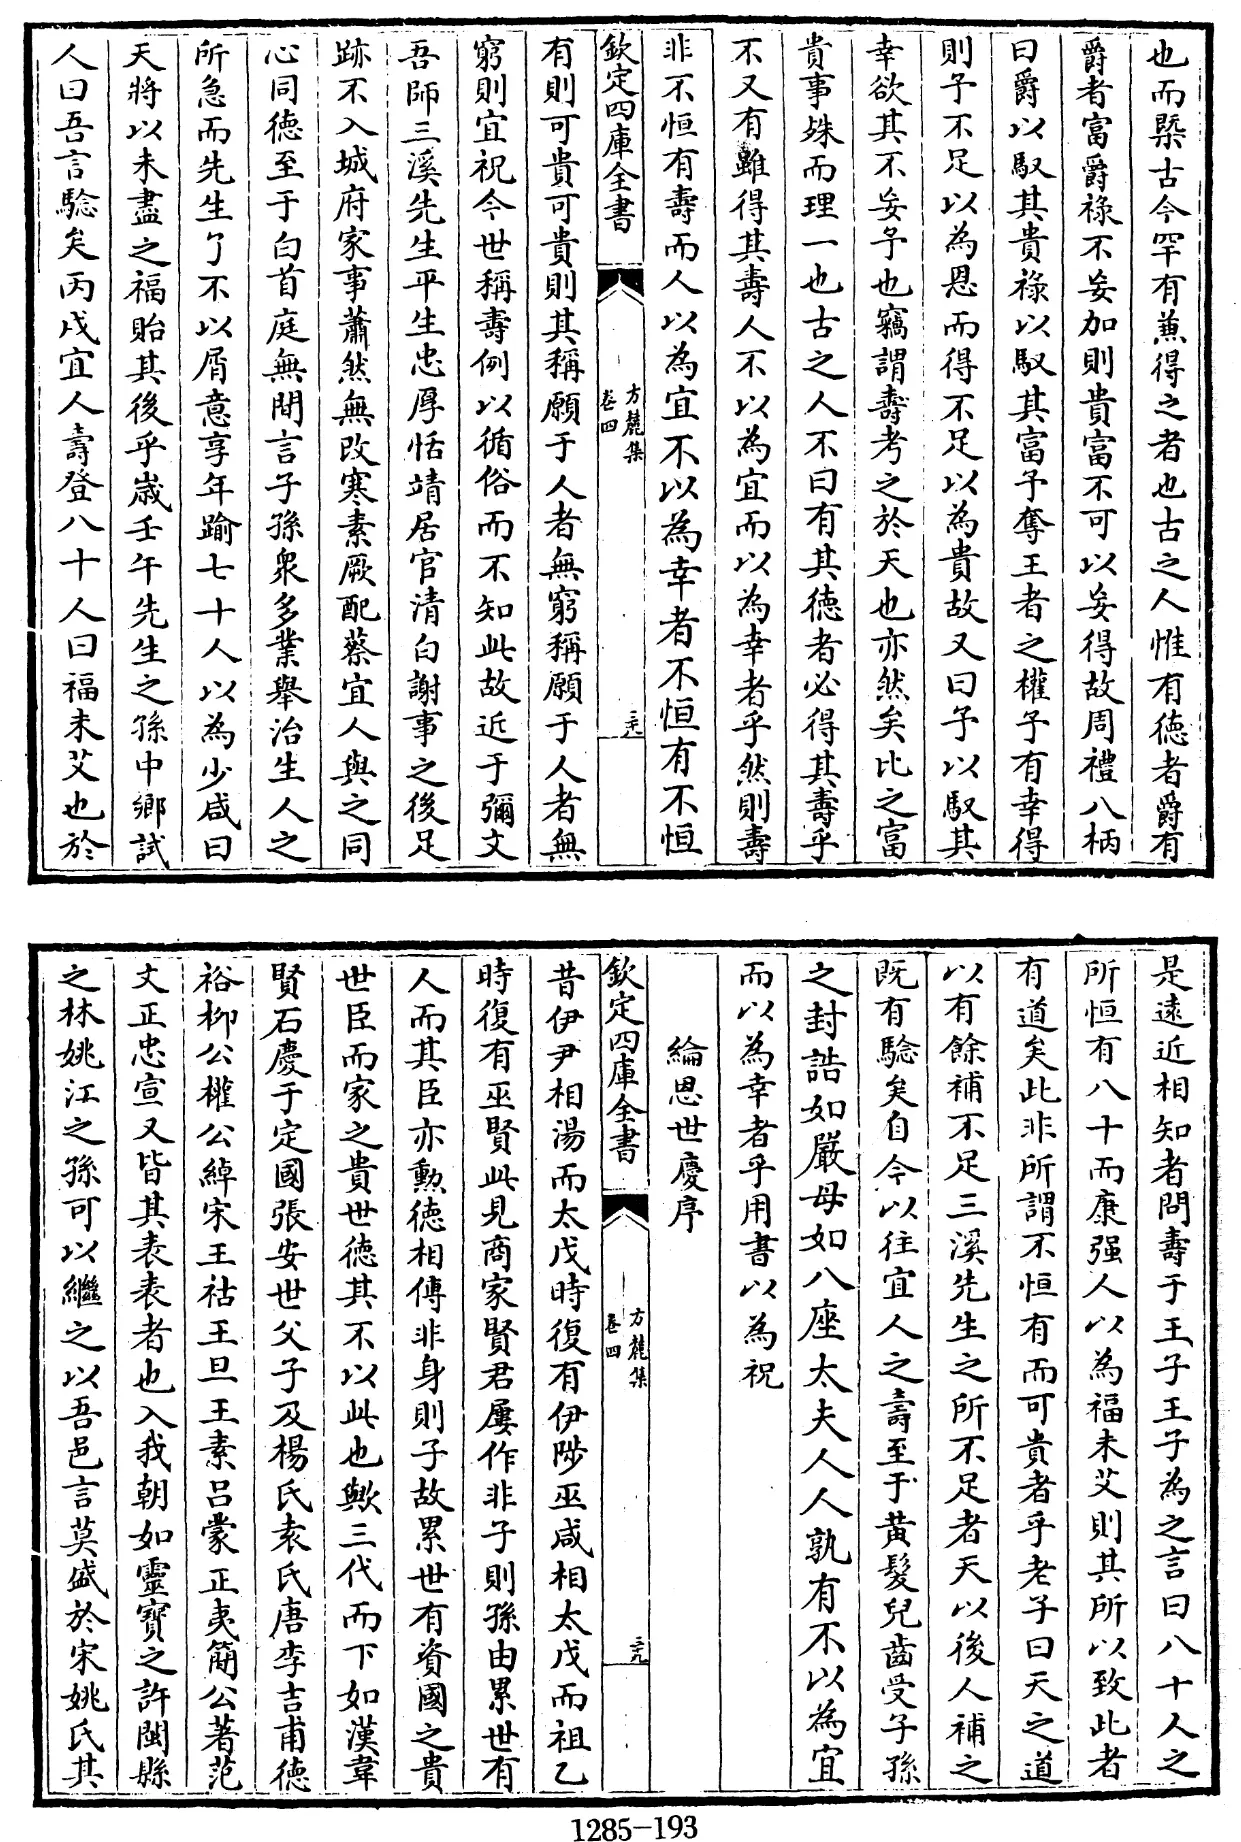 也而槩古今罕有兼得之者也古之人惟有德者爵有
爵者富爵祿不妄加則貴富不可以妄得故周禮八柄
曰爵以馭其貴祿以馭其富予奪王者之權予有幸得
則予不足以為恩而得不足以為貴故又曰予以馭其
幸欲其不妄予也竊謂壽考之於天也亦然矣比之富
貴事殊而理一也古之人不曰有其德者必得其壽乎
不又有雖得其壽人不以為宜而以為幸者乎然則壽
非不恒有壽而人以為宜不以為幸者不恒有不恒
欽定四庫全書
方麓集
卷四
三六
有則可貴可貴則其稱願于人者無窮稱願于人者無
窮則宜祝今世稱壽例以循俗而不知此故近于彌文
吾師三溪先生平生忠厚恬靖居官清白謝事之後足
跡不入城府家事蕭然無改寒素厥配蔡宜人與之同
心同德至于白首庭無間言子孫衆多業舉治生人之
所急而先生了不以屑意享年踰七十人以為少咸曰
天將以未盡之福貽其後乎歲壬午先生之孫中鄉試
人曰吾言驗矣丙戌宜人壽登八十人曰福未艾也於
是遠近相知者問壽于王子王子為之言曰八十人之
所恒有八十而康强人以為福未艾則其所以致此者
有道矣此非所謂不恒有而可貴者乎老子曰天之道
以有餘補不足三溪先生之所不足者天以後人補之
既有驗矣自今以往宜人之壽至于黄髮兒齒受子孫
之封誥如嚴母如八座太夫人人孰有不以為宜
而以為幸者乎用書以為祝
綸恩世慶序
欽定四庫全書
方麓集
卷四
三九
昔伊尹相湯而太戊時復有伊陟巫咸相太戊而祖乙
時復有巫賢此見商家賢君屢作非子則孫由累世有
人而其臣亦勲德相傳非身則子故累世有資國之貴
世臣而家之貴世德其不以此也歟三代而下如漢韋
賢石慶于定國張安世父子及楊氏袁氏唐李吉甫德
裕柳公權公綽宋王祜王旦王素呂蒙正夷簡公著范
文正忠宣又皆其表表者也入我朝如靈寶之許閩縣
之林姚江之孫可以繼之以吾邑言莫盛於宋姚氏其
1285-193